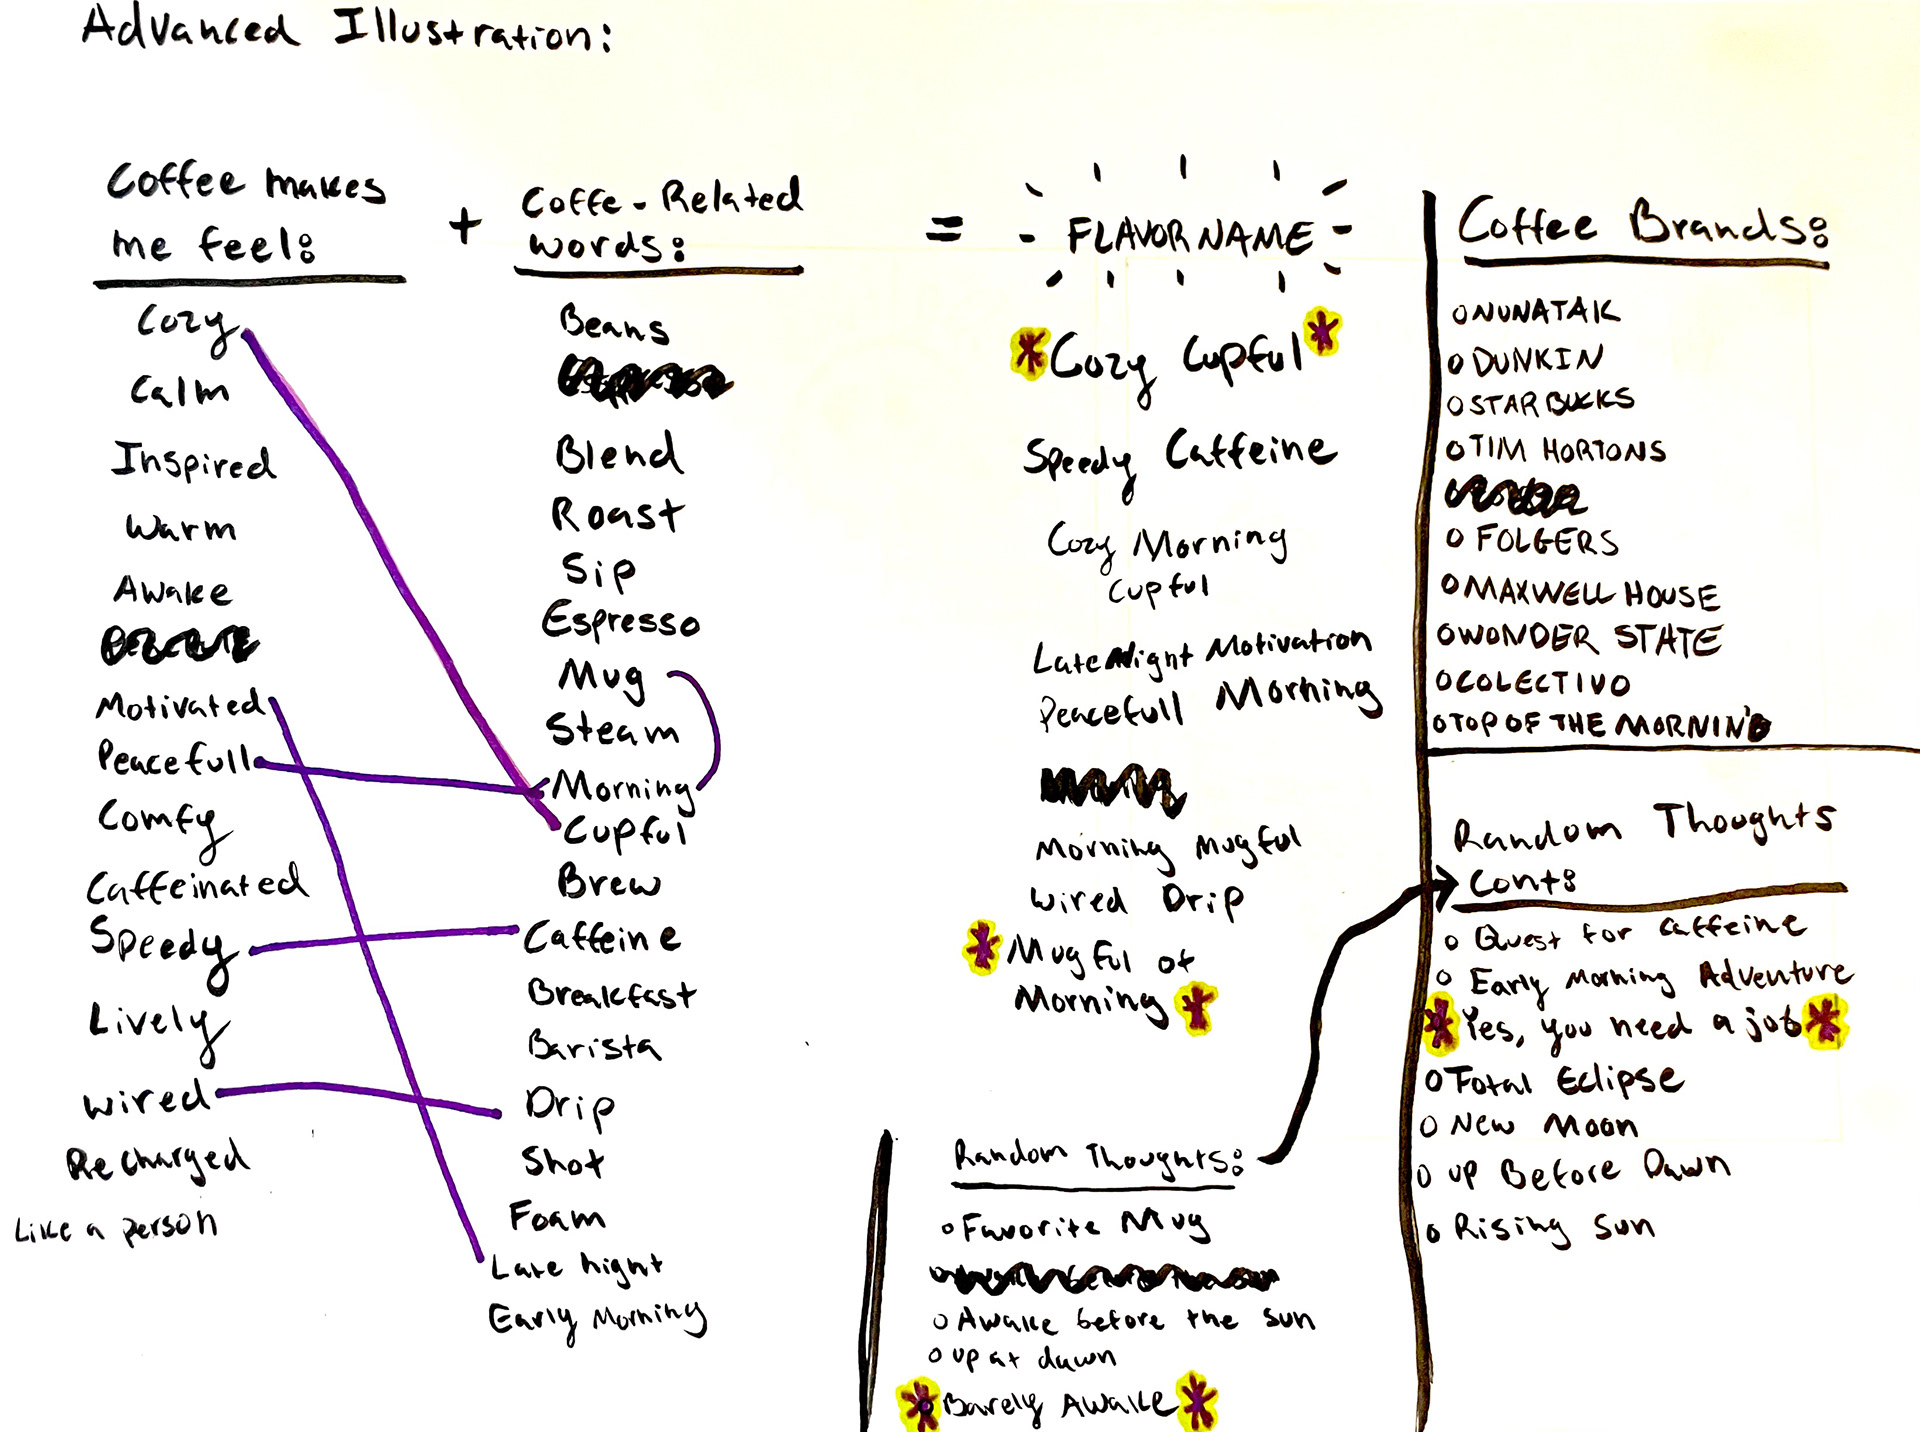 Advanced Illustration:
Coffee makes
me feel:
Cozy
Calm
Inspired
Warm
Awake
Motivated
Peacefull
Comfy
Caffeinated
Speedy
Lively
Wired
Recharged
Like a person
+
Coffe-Related
words:
Beans
Blend
Roast
Sip
Espresso
Mug
Steam
Morning
Cupful
Brew
Caffeine
Breakfast
Barista
Drip
Shot
Foam
Late night
Early Morning
=
FLAVOR NAME
Cozy Cupful
Speedy Caffeine
Cozy Morning
Cupful
Late Night Motivation
Peacefull Morning
Morning Mugful
Wired Drip
Mugful of
Morning
Random Thoughts:
Favorite Mug
Awake before the sun
up at dawn
Barely Awake
Coffee Brands:
NUNATAK
DUNKIN
STARBUCKS
TIM HORTONS
FOLGERS
MAXWELL HOUSE
WONDER STATE
COLECTIVO
TOP OF THE MORNIN'
Random Thoughts
Cont:
Quest for caffeine
Early Morning Adventure
Yes, you need a job
Total Eclipse
New Moon
up Before Dawn
Rising sun